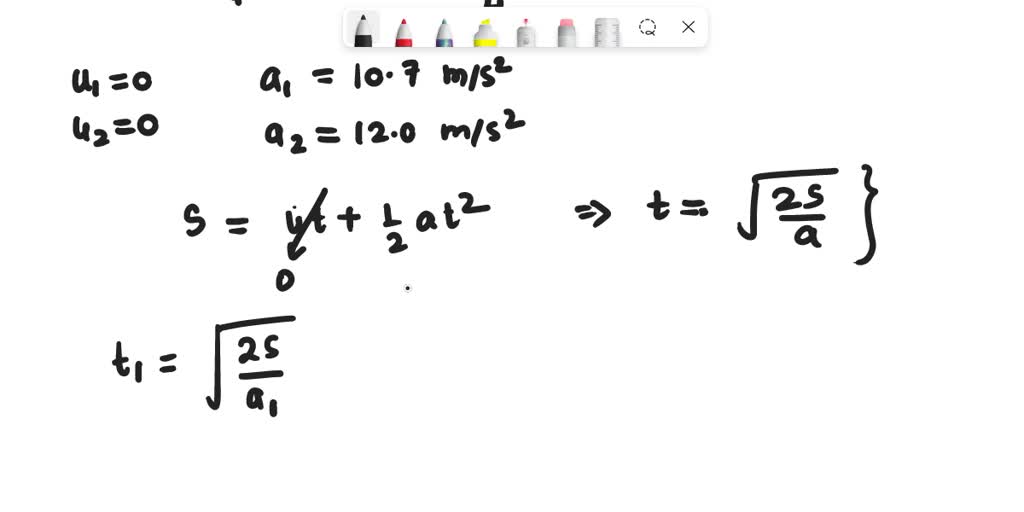 u₁=0 a₁ = 10.7 m/s²
u₂=0 a₂ = 12.0 m/s²
S = ut + 1/2 at² ⇒ t = √(2S/a) }
0
t₁ = √(2S/a₁)